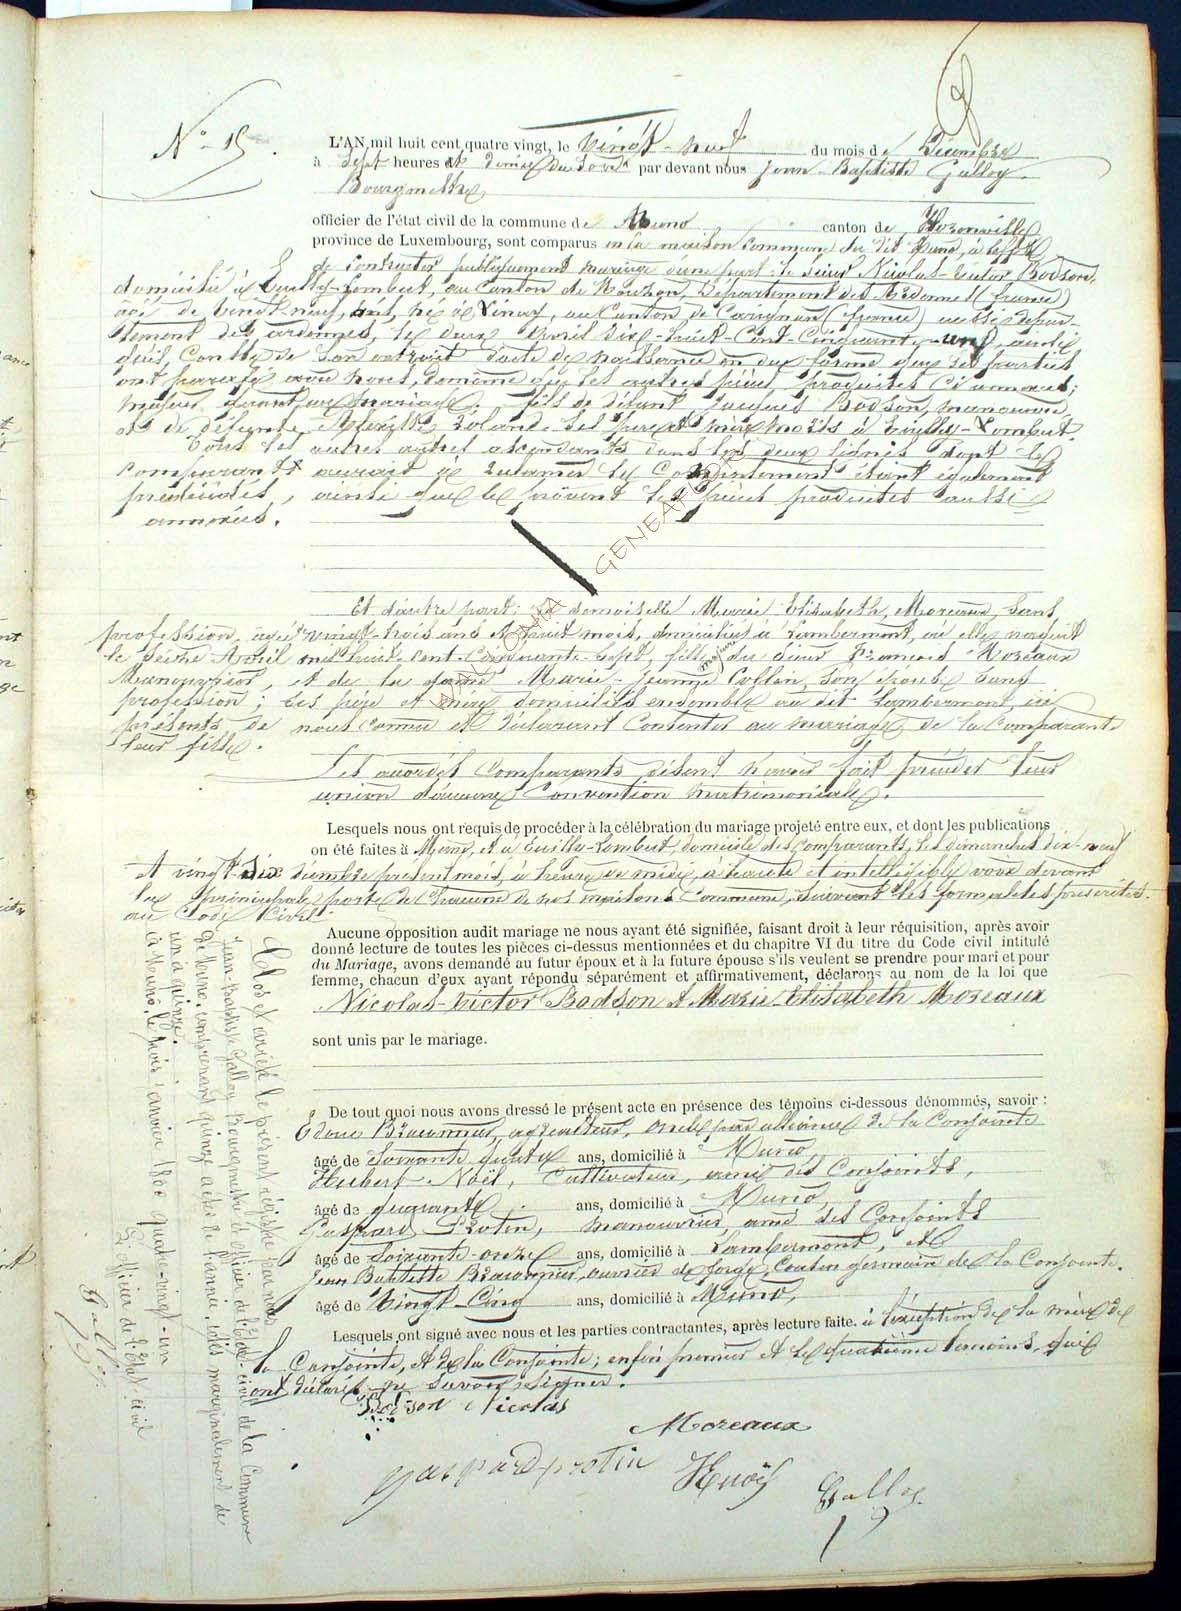 N° 15.
L'AN mil huit cent quatre vingt, le vingt-neuf du mois de Décembre
à sept heures et demie du soir par devant nous Jean-Baptiste Galloy.
Bourgmestre
officier de l'état civil de la commune de Muno canton de
province de Luxembourg, sont comparus en la maison commune du dit Muno, à l'effet
de contracter publiquement mariage d'une part: le sieur Nicolas-Victor Bodson,
domicilié à Euilly-Lombut, au Canton de Mouzon, Département des Ardennes (france)
âgé de vingt-neuf ans, né à au Canton de Carignan (france) aussi dépar-
tement des ardennes, le deux Avril dix-huit-Cent-Cinquante-un, ainsi
qu'il Conste de son extrait d'acte de naissance en due forme que les parties
ont paraphé avec nous, de même que les autres pièces produites Ci annexées;
majeur quant au mariage; fils de défunt Jacques Bodson, manouvrier
et de défunte les père et mère morts à Euilly-Lombut.
Tous les autres ascendants dans les deux lignes dont le
comparant aurait à réclamer le Consentement étant également
prédécédés, ainsi que le prouvent les pièces produites aussi
annexées.
WALLONIA GENEAFLOR
Et d'autre part: la demoiselle Marie Elisabeth Moreaux, sans
profession, âgée vingt-trois ans et huit mois, domiciliée à Lambermont, où elle naquit
le Avril mil huit-cent-Cinquante-Sept, fille majeure du sieur François Moreaux
Manouvrier, et de la dame Marie-Jeanne Collin, son épouse sans
profession; les père et mère domiciliés ensemble au dit Lambermont, ici
présents de nous connus et déclarant Consentir au mariage de la Comparante
leur fille.
Les accordés comparants disent n'avoir fait précéder leur
union d'aucune Convention matrimoniale.
Lesquels nous ont requis de procéder à la célébration du mariage projeté entre eux, et dont les publications
on été faites à Muno, et à Euilly-Lombut, domicile des Comparants, les dimanches dix-neuf
et vingt-six décembre présent mois, à heure de midi, à haute et intelligible voix devant
la principale porte de Chacune de nos maisons Commune, suivant les formalités prescrites
au Code Civil.
Aucune opposition audit mariage ne nous ayant été signifiée, faisant droit à leur réquisition, après avoir
donné lecture de toutes les pièces ci-dessus mentionnées et du chapitre VI du titre du Code civil intitulé
du Mariage, avons demandé au futur époux et à la future épouse s'ils veulent se prendre pour mari et pour
femme, chacun d'eux ayant répondu séparément et affirmativement, déclarons au nom de la loi que
Nicolas-Victor Bodson et Marie-Elisabeth Moreaux
sont unis par le mariage.
De tout quoi nous avons dressé le présent acte en présence des témoins ci-dessous dénommés, savoir :
Braconnier, agriculteur, oncle par alliance de la Conjointe
âgé de Soixante quatre ans, domicilié à Muno,
Hubert Noël, Cultivateur, ami des Conjoints,
âgé de quarante ans, domicilié à Muno,
Gaspard Protin, manouvrier, ami des Conjoints
âgé de Soixante-onze ans, domicilié à Lambermont, et
Jean Baptiste Braconnier, ouvrier de forge, Cousin germain de la Conjointe.
âgé de Vingt-Cinq ans, domicilié à Muno,
Lesquels ont signé avec nous et les parties contractantes, après lecture faite. à l'exception de la mère de
la Conjointe, et de la Conjointe; enfin premier et le quatrième témoins, qui
ont déclaré ne savoir signer.
Bodson Nicolas
Moreaux
gaspard protin
Hnoël
Galloy
Clos et arrêté le présent régistre par nous
Jean-Baptiste Galloy Bourgmestre et officier de l'Etat-civil de la Commune
de Muno, comprenant quinze actes de l'année, cotés marginalement de
un à quinze.
à Muno, le trois janvier 1800 quatre-vingt-un
L'officier de l'Etat-civil
Galloy